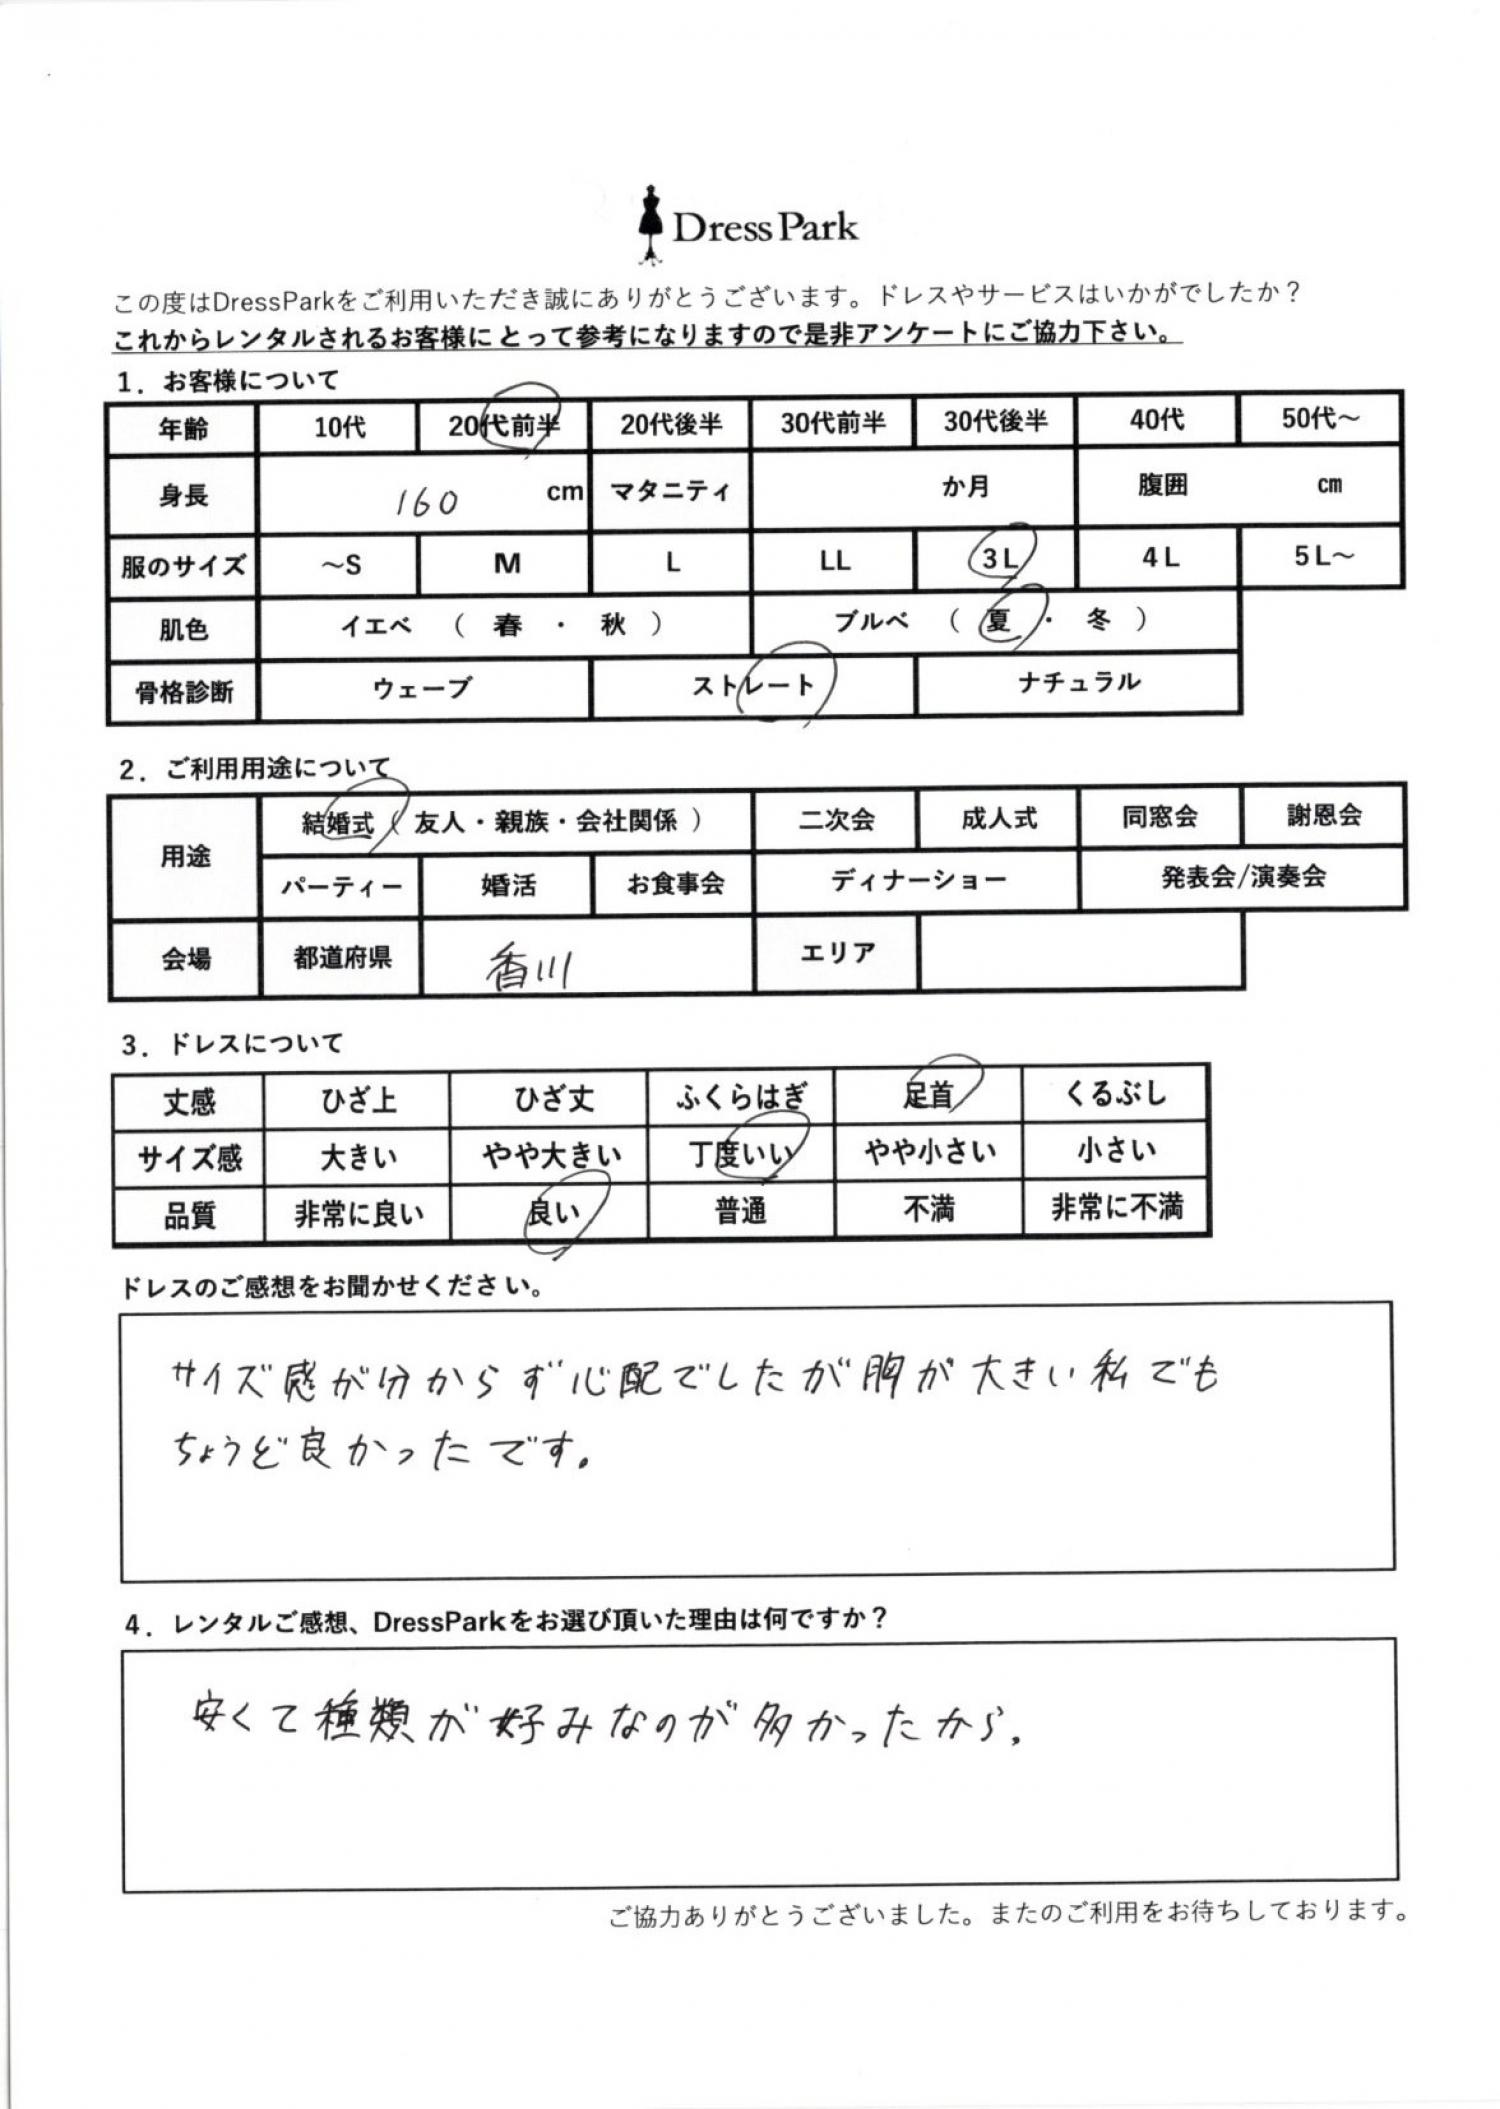 DressPark
この度はDressParkをご利用いただき誠にありがとうございます。ドレスやサービスはいかがでしたか？
これからレンタルされるお客様にとって参考になりますので是非アンケートにご協力下さい。
1．お客様について
年齢 10代 20代前半 20代後半 30代前半 30代後半 40代 50代～
身長 160 cm マタニティ か月 腹囲 cm
服のサイズ ～S M L LL 3L 4L 5L～
肌色 イエベ （ 春 ・ 秋 ） ブルベ （ 夏 ・ 冬 ）
骨格診断 ウェーブ ストレート ナチュラル
2．ご利用用途について
用途 結婚式（ 友人・親族・会社関係 ） 二次会 成人式 同窓会 謝恩会
パーティー 婚活 お食事会 ディナーショー 発表会/演奏会
会場 都道府県 香川 エリア
3．ドレスについて
丈感 ひざ上 ひざ丈 ふくらはぎ 足首 くるぶし
サイズ感 大きい やや大きい 丁度いい やや小さい 小さい
品質 非常に良い 良い 普通 不満 非常に不満
ドレスのご感想をお聞かせください。
サイズ感が分からず心配でしたが胸が大きい私でも
ちょうど良かったです。
4．レンタルご感想、DressParkをお選び頂いた理由は何ですか？
安くて種類が好みなのが多かったから。
ご協力ありがとうございました。またのご利用をお待ちしております。